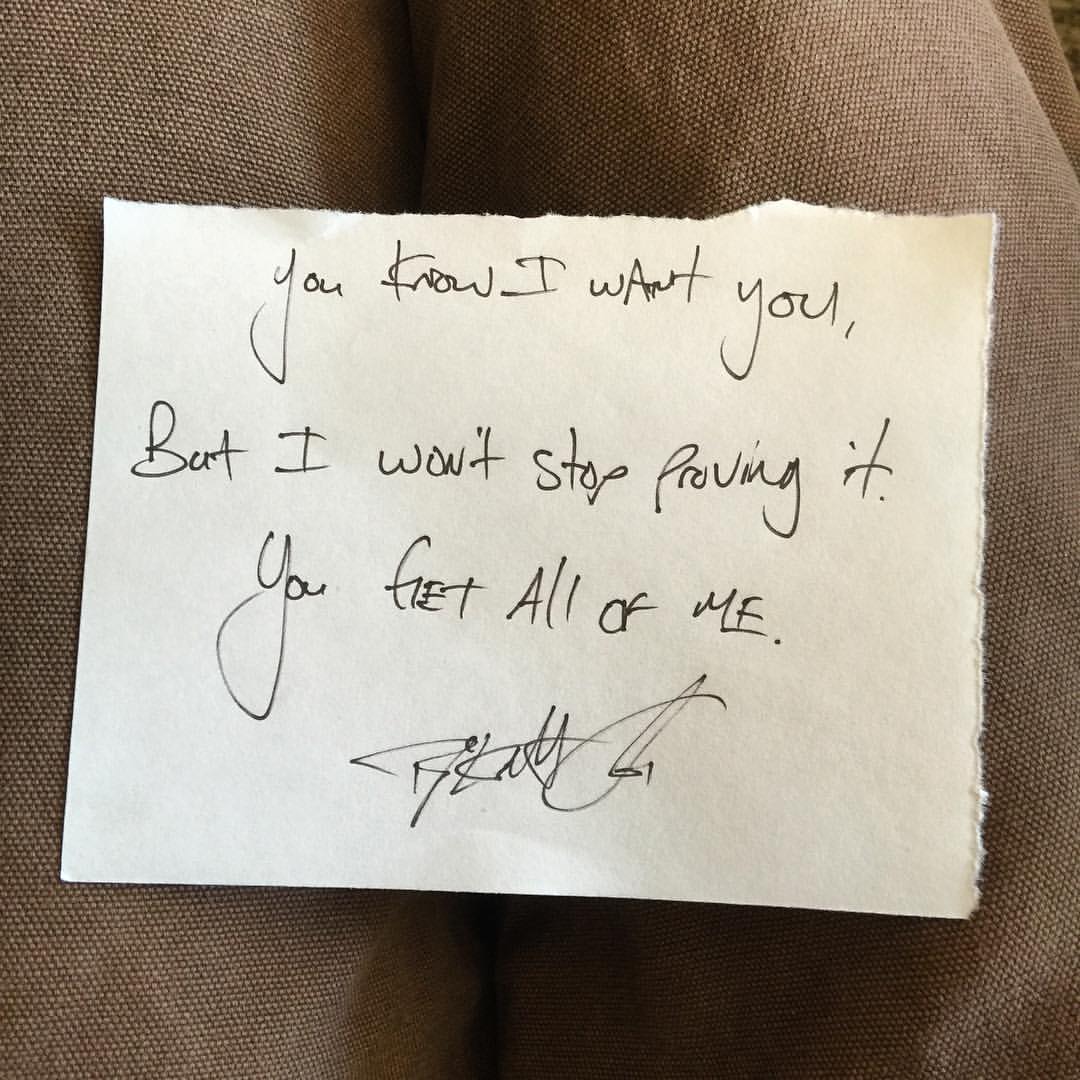 you know I wAnt you,
But I won't stop Proving it.
You GET All OF ME.